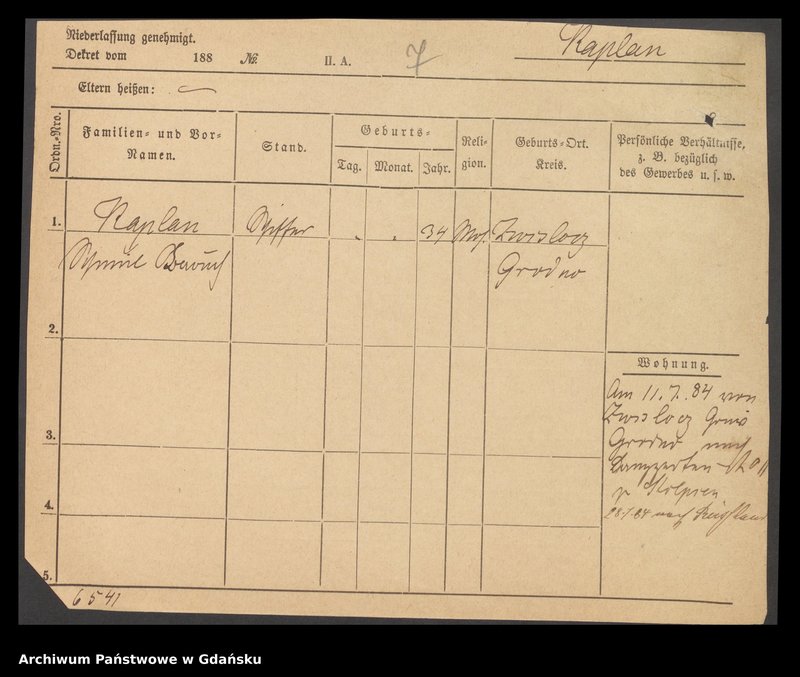 Niederlassung genehmigt.
Dekret vom 188 № II. A. 7 Kaplan
Eltern heißen: —
Ordn.-Nro. Familien- und Vor-Namen. Stand. Geburts- Tag. Monat. Jahr. Reli-gion. Geburts-Ort. Kreis. Persönliche Verhältnisse, z. B. bezüglich des Gewerbes u. s. w.
1. Kaplan Schiffer 34 Mos. Zwislocz
Schmul Grodno
2.
Wohnung.
Am 11.7.84 von
Zwislocz
3. Grodno nach
4.
28.7.84 nach Russland
5.
6541
Archiwum Państwowe w Gdańsku